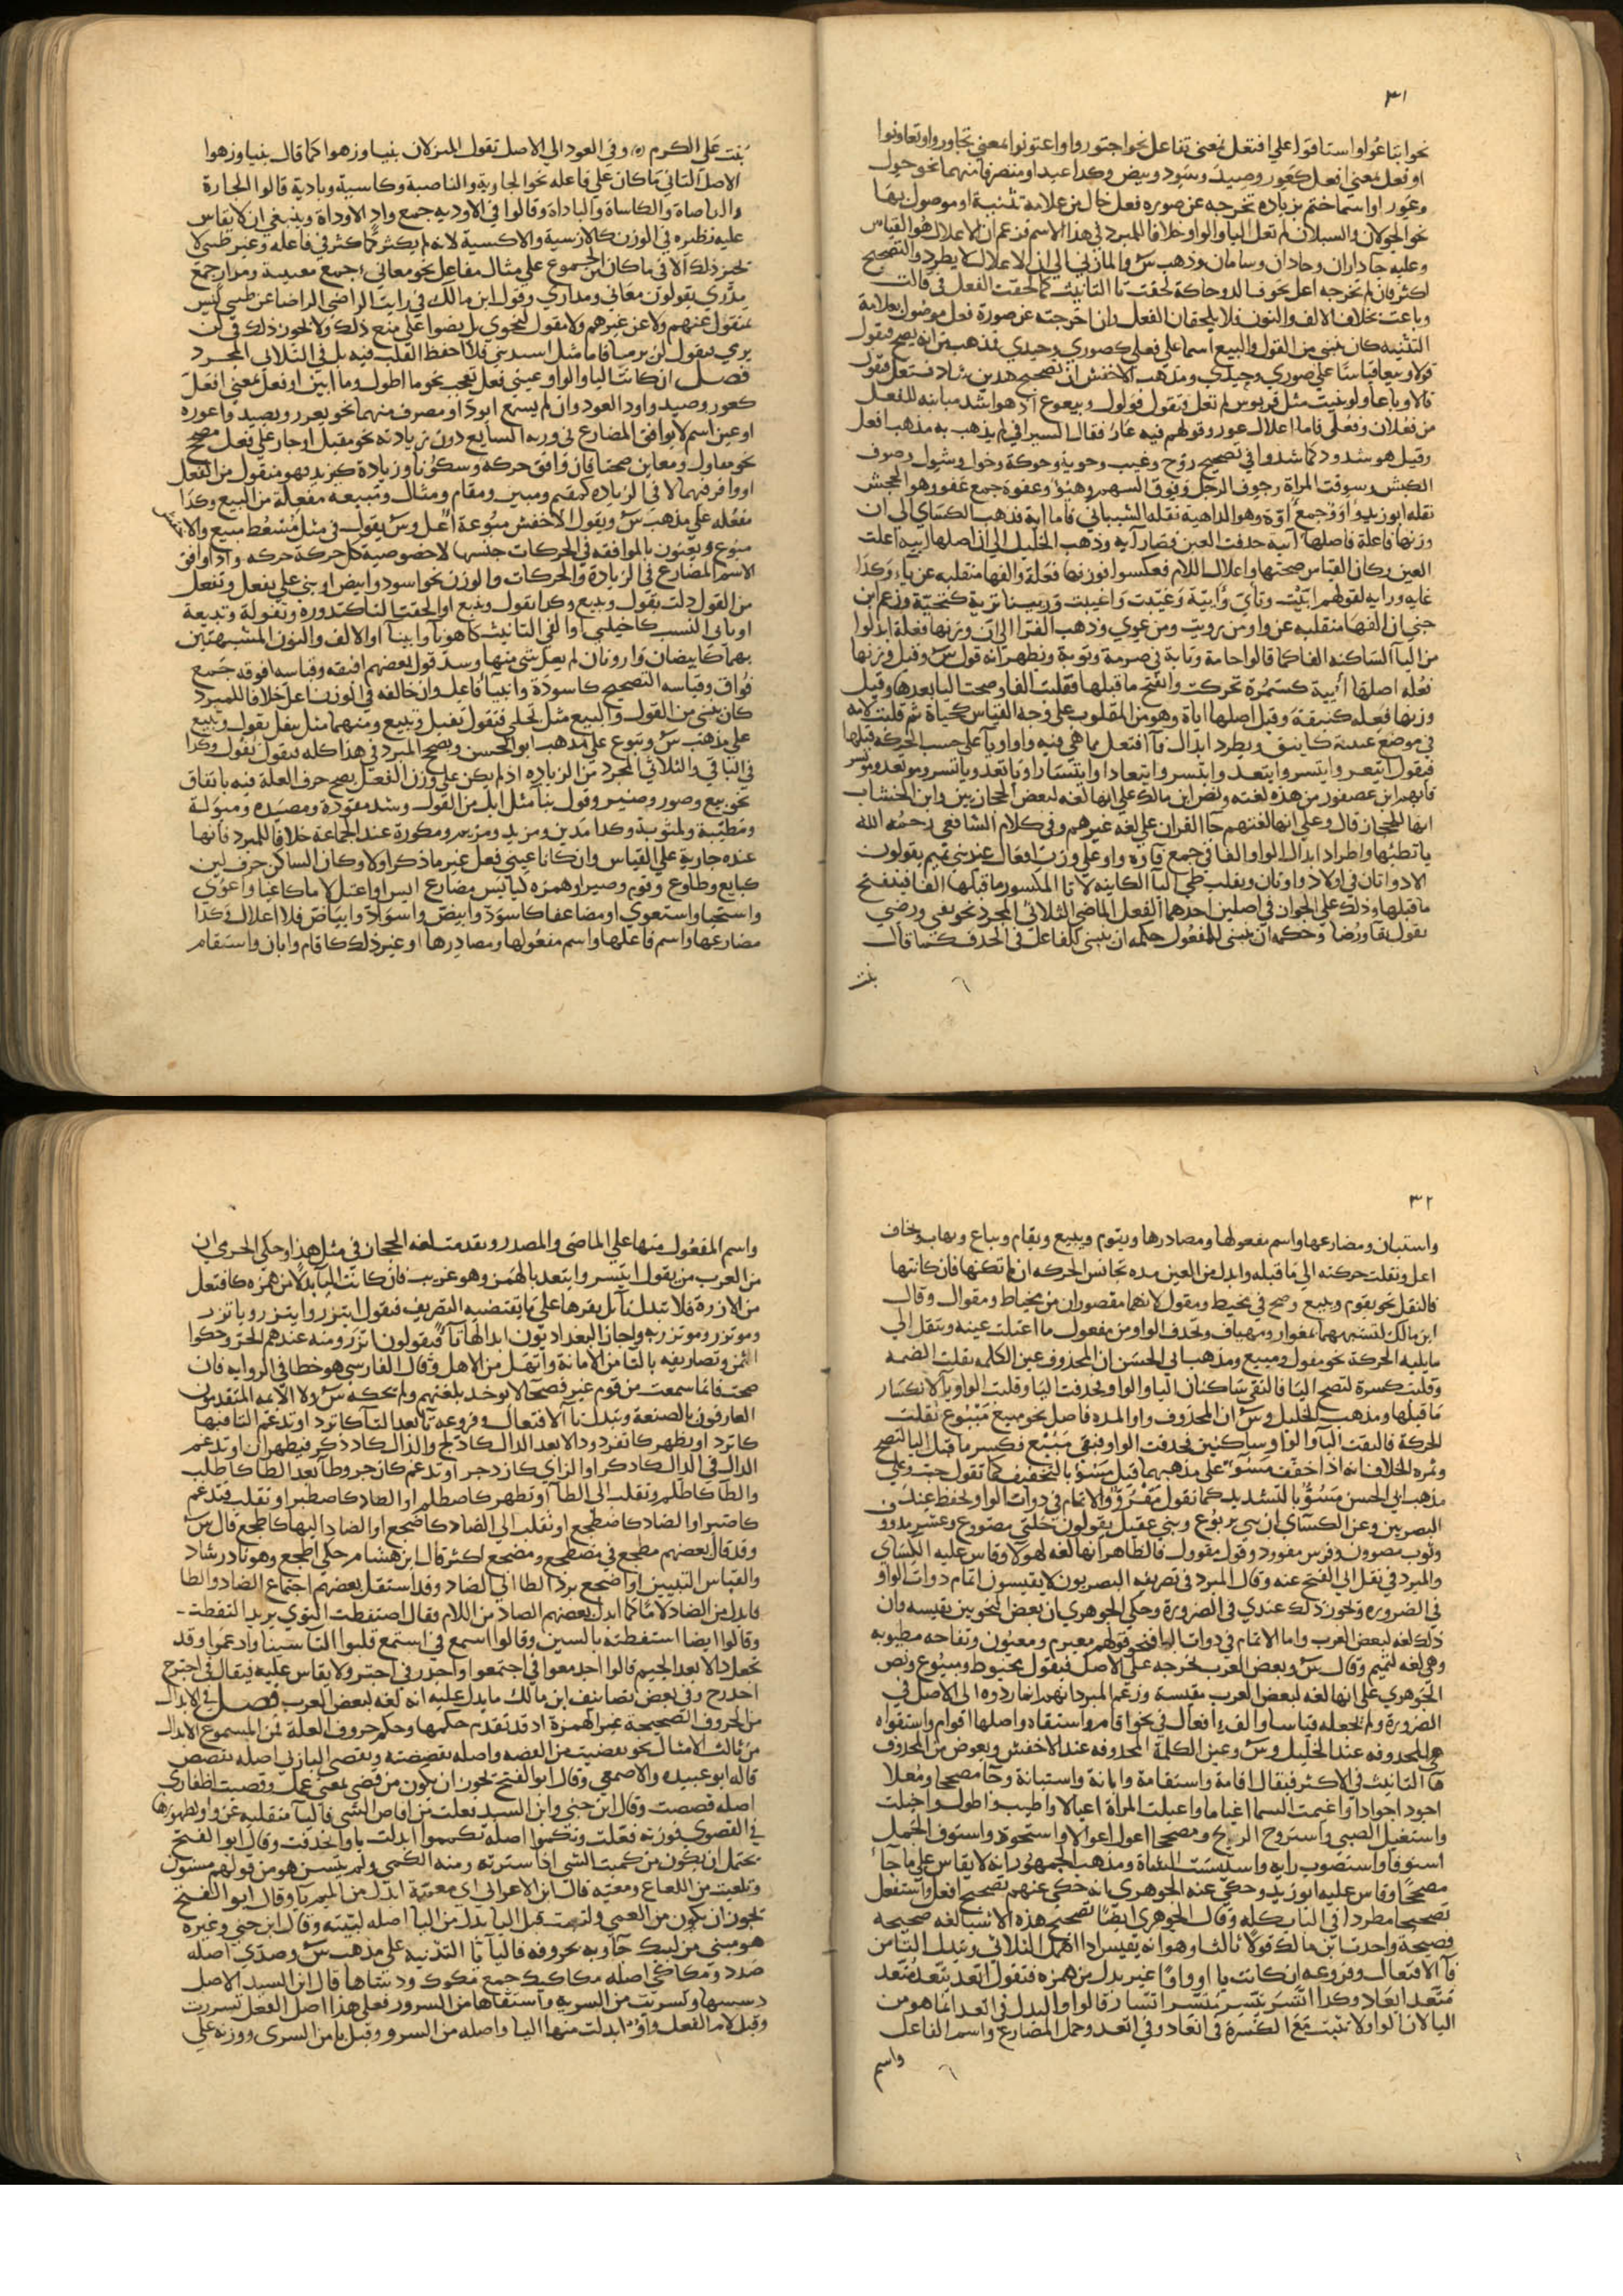 ٣١
نحو ابتاعوا واستاقوا علي افتعل بمعنى تفاعل نحو اجتوروا واعتونوا بمعنى تجاوروا وتعاونوا
او فعل بمعنى افعل كعور وصيد وسود وبيض وكذا عيدا ومتصرفا منهما نحو حول
وعور او اسما ختم بزياده تخرجه عن صوره فعل خال من علامة تثنية او موصول بها
نحو الجولان والسيلان لم تعل اليا والواو خلافا للمبرد في هذا الاسم فزعم ان الاعلال هو القياس
وعليه جا داران وحادان وسامان وذهب س والمازني الي ان الاعلال لا يطرد والتصحيح
اكثر فان لم تخرجه اعل نحو حاكة لحقت تا التانيث كما لحقت الفعل في قالت
وباعت بخلاف الالف والنون فلا يلحقان الفعل وان اخرجته عن صورة فعل موصول بعلامة
التثنيه كان تبني من القول والبيع اسما علي فعلي كصوري وحيدي فذهب انه يصح فيقول
قولا وبيعا قياسا علي صوري وحيدي ومذهب الاخفش ان تصحيح هذين شاذ فتعل فتقول
قالا وباعا ولو بنيت مثل قربوس لم تعل فتقول قولول وبيعوع اذ هو اشد مباينه للفعل
من فعلان وفعلي فاما اعلال عور وقولهم فيه عار فقال السيرافي لم يذهب به مذهب افعل
وقيل هو شذوذ كما شذوا في تصحيح روح وغيب وحوية وحوكة وخول وشول وصوف
الكبش وسوقت المراة رجوف الرجل وفوق السهم وهيؤ وعفوة جمع عفو وهو الجحش
نقله ابو زيد واوو جمع اوة وهو الداهية نقله الشيباني فاما اية فذهب الكساي الي ان
وزنها فاعلة فاصلها آيية حذفت العين فصار آية وذهب الخليل الي ان اصلها اييه اعلت
العين وكان القياس صحتها واعلال اللام فعكسوا فوزنها فعلة والفها منقلبه عن ياء وكذا
غايه ورايه لقولهم
جني ان الفها منقلبه عن واو من رويت ومن غوي وذهب الفرا الي ان وزنها فعلة ابدلوا
من اليا الساكنه الفا كما قالوا حامة وتابة في صومة وتوبة ويظهر انه قول س وقيل وزنها
فعله اصلها أيية كسمرة تحركت وانفتح ما قبلها فقلبت الفا وصحت اليا بعدها وقيل
وزنها فعله كنبقة وقيل اصلها اياة وهو من المقلوب علي وجه القياس كحياة ثم قلبت لامه
في موضع عينه كاينق ويطرد ابدال فا افتعل مما هي فيه واو او يا علي حسب الحركه قبلها
فيقول ايتعد وايتسر وايتعد وايتسر وايتعادا وايتسارا وياتعد وياتسر وموتعد وموتسر
فابهم ابن عصفور من هذه لغته ونص ابن مالك علي انها لغه لبعض الحجازيين وابن الخشاب
انها للحجاز قال وعلي انها لغتهم جا القران علي لغه غيرهم وفي كلام الشافعي رحمه الله
ياتطيها واطراد ابدال الواو الفا في جمع فاوه واو علي وزن افعال عند بني تميم يقولون
الادواثان في اولاد واوثان ويقلب طي اليا الكاينه لاما المكسور ما قبلها الفا فينفتح
ما قبلها وذلك علي الجواز في اصلين احدهما الفعل الماضي الثلاثي المجرد نحو بقي ورضي
يقول بقا ورضا وحكمه ان بنبني للمفعول حكمه ان بنبني للفاعل في الحذف كما قال
بنت
بنت علي الكرم وفي العود الي الاصل تقول المنزلان بنيا وزهوا كما قال بنيا وزهوا
الاصل الثاني ما كان علي فاعله نحو الجارية والناصية وكاسية وبادية قالوا الجارة
والناصاة والكاساة والباداة وقالوا في الاودية جمع واد الاوداة وينبغي ان لا يقاس
عليه نظيره في الوزن كالارسية والاكسية لانه لم يكثر كما كثر في فاعله وغير طيي لا
تجيز ذلك الا في ما كان من الجموع علي مثال مفاعل نحو معاني جمع معيية ومدار جمع
مدري يقولون معاني ومداري وقول ابن مالك في رايت الراضي الراضا عن طيي ليس
بمنقول عنهم ولا عن غيرهم ولا مقول لنحوي بل نصوا علي منع ذلك ولا يجوز ذلك في لن
يرمي فيقول لن يرما فاما مثل استدني فلا احفظ القلب فيه بل في الثلاثي المجرد
فصل ان كانت اليا والواو عيني فعل تعجب نحو ما اطول وما ابين او فعل بمعنى افعل
كعور وصيد واود العود وان لم يسمع ايود او مصرف منهما نحو يعور ويصيد واعوره
او عين اسم لا يوافق المضارع في وزنه السايع دون زيادته نحو مقيل او جار علي فعل مصحح
نحو مقاول ومعاين صحتا فان وافق حركه وسكونا وزيادة كيزيد فهو منقول من الفعل
او وافق فيهما لا في الزياده كمقيم ومبين ومقام ومثال وتبيعه مفعلة من البيع وكذا
مفعله علي مذهب س ويقول الاخفش مبوعة اعل وس يقول في مثل مسقط مبيع والاخفش
مبوع ويعنون بالموافقه في الحركات جنسها لا خصوصية كل حركة حركه واذا وافق
الاسم المضارع في الزيادة والحركات والوزن نحو اسود وابيض او بني علي يفعل وتفعل
من القول قلت تقول وتبيع وكذا يقول وتبع او الحقت التا كتدورة وتقولة وتبيعة
او ياي النسب كاخيلي او الفي التانيث كاهونا وابينا او الالف والنون المشبهتين
بهما كابيضان واروتان لم يعل شي منها وشذ قول بعضهم افيقه وقياسه افوقه جمع
فواق وقياسه التصحيح كاسودة وانبيا فاعل وان خالفه في الوزن اعل خلافا للمبرد
كان تبني من القول والبيع مثل تحلي فتقول تقيل وتبيع ومنهما مثل تفل تقول وتبيع
علي مذهب س وتبوع علي مذهب ابو الحسن ويصحح المبرد في هذا كله فيقول تقول وكذا
في الباقي والثلاثي المجرد من الزياده اذ لم يكن علي وزن الفعل يصح حرف العلة فيه باتفاق
نحو بيع وصور وصير وقول بنا مثل ابل من القول وشذ مقودة ومصيده ومبولة
ومطيبة ولمثوبة وكذا مدين ومزيد ومزيم ومكوزة عند الجماعة خلافا للمبرد فانها
عنده جارية علي القياس وان كانا عيني فعل غير ما ذكر اولا وكان الساكن حرف لين
كبايع وطاوع وقوم وصير او همزه ليايس مضارع ايس او اعتل لاما كاعيا واعوي
واستحيا واستعوي او مضاعفا كاسود وابيض واسواد وابياض فلا اعلال وكذا
مضارعها واسم فاعلها واسم مفعولها ومصادرها او غير ذلك كاقام وابان واستقام
٣٢
واستبان ومضارعها واسم مفعولها ومصادرها ويقوم ويبيع ويقام ويباع ويهاب ويخاف
اعل ونقلت حركته الي ما قبله وابدل من العين مده تجانس الحركه ان لم تكنها فان كانتها
فالنقل نحو يقوم ويبيع وصح في مخيط ومقول لانهما مقصوران من مخياط ومقوال وقال
ابن مالك لتشبههما بمغوار ومهياف وتحذف الواو من مفعول ما اعتلت عينه وينقل الي
ما يليه الحركة نحو مقول ومبيع ومذهب ابي الحسن ان المحذوف عين الكلمه نقلت الضمه
وقلبت كسرة لتصح اليا فالتقي ساكنان اليا والواو فحذفت اليا وقلبت الواو يا لانكسار
ما قبلها ومذهب الخليل وس ان المحذوف واو المده فاصل نحو مبيع مبيوع نقلت
الحركة فالتقت اليا والواو ساكنين فحذفت الواو فبقي مبيع فكسر ما قبل اليا لتصح
وثمره الخلاف انه اذا خفف مسوء علي مذهبهما قيل مسو بالتخفيف كما تقول خب وعلي
مذهب ابي الحسن مسو بالتشديد كما تقول مقرو والاتمام في ذوات الواو تحفظ عند
البصريين وعن الكساي ان بني يربوع وبني عقيل يقولون حلي مصووغ وعنبر مدووف
وثوب مصوون وفرس مقوود وقول مقوول فالظاهر انها لغه لهولا وقاس عليه الكساي
والمبرد في نقل ابي الفتح عنه وقال المبرد في تصريفه البصريون لا يقيسون اتمام ذوات الواو
في الضروره ويجوز ذلك عندي في الضرورة وحكي الجوهري ان بعض النحويين نقيسه فان
ذلك لغه لبعض العرب واما الاتمام في ذوات اليا فنحو قولهم مغيوم ومعيون وتفاحه مطيوبه
وهي لغه لتميم وقال س وبعض العرب يخرجه علي الاصل فيقول مخيوط ومبيوع ونص
الجوهري علي انها لغه لبعض العرب مقيسة وزعم المبرد انهم انما ردوه الي الاصل في
الضرورة ولم يجعله قياسا والف افعال في نحو اقام واستقاد واصلها اقوام واستقواد
هي المحذوفه عند الخليل وس وعين الكلمة المحذوفه عند الاخفش ويعوض من المحذوف
ها التانيث في الاكثر فيقال اقامة واستقامة وابانة واستبانة وجا مصححا ومعلا
اجود اجوادا واغيمت السما اغياما واغيلت المراة اغيالا واطيب واطول واخيلت
واستغيل الصبي واستروح الريح ومصححا اعول اعوالا واستحوذ واستنوق الجمل
استنوقا واستصوب رايه واستتيست الشاة ومذهب الجمهور انه لا يقاس علي ما جا
مصححا وقاس عليه ابو زيد وحكي عنه الجوهري انه حكي عنهم تصحيح افعل واستفعل
تصحيحا مطردا في الباب كله وقال الجوهري ايضا تصحيح هذه الاشيا لغه صحيحه
فصيحة واحدث ابن مالك قولا ثالثا وهو انه يقيس اذا اهمل الثلاثي وتبدل التا من
فا الافتعال وفروعه ان كانت يا او واوا غير بدل من همزه فتقول اتعد يتعد متعد
متعد اتعاد وكذا اتسر يتسر متسر اتسار قالوا والبدل في اتعد انما هو من
اليا لان الواو لا تثبت مع الكسرة في اتعاد وفي اتعد وحمل المضارع واسم الفاعل
واسم
واسم المفعول منها علي الماضي والمصدر وتقدمت لغه الحجاز في مثل هذا وحكي الجرمي ان
من العرب من يقول ايتسر وايتعد بالهمز وهو غريب فان كانت اليا بدلا من همزه كافتعل
من الازرة فلا تبدل تا بل يقرها علي ما يقتضيه التصريف فيقول ايتزر وايتزر وياتزر
وموتزر وموتزر به واجاز البغداديون ابدالها تا فيقولون اتزر ومنه عندهم اتجر وحكوا
اتمن وتصاريفه بالتا من الامانة واتهل من الاهل وقال الفارسي هو خطا في الروايه فان
صحت فانما سمعت من قوم غير فصحا لا توخذ بلغتهم ولم يحكه س ولا الائمه المتقدمون
العارفون بالصنعة وتبدل تا الافتعال وفروعه ثا بعد الثا كاثرد او تدغم الثا فيها
كاترد او يظهر كاثترد ودالا بعد الدال كادلج والذال كاذدكر فيظهران او تدغم
الذال في الدال كادكر او الزاي كازدجر او تدغم كازجر وطا بعد الطا كاطلب
والظا كاظلم وتقلب الي الطا او تظهر كاظطلم او الصاد كاصطبر او تقلب فتدغم
كاصبر او الضاد كاضطجع او تقلب الي الضاد كاضجع او الضاد اليها كاطجع قال س
وقد قال بعضهم مطجع في مضطجع ومضجع اكثر قال ابن هشام حكي اطجع وهو نادر شاذ
والقياس التبيين او اضجع برد الطا الي الضاد وقد استثقل بعضهم اجتماع الضاد والطا
فابدل من الضاد لاما كما ابدل بعضهم الضاد من اللام فقال اضتقطت النوي يريد التقطت
وقالوا ايضا استقطته بالسين وقالوا اسمع في استمع قلبوا التا سينا وادغموا وقد
تجعل دالا بعد الجيم قالوا اجدمعوا في اجتمعوا واجدز في اجتز ولا يقاس عليه فيقال في اجترح
اجدرح وفي بعض تصانيف ابن مالك ما يدل عليه انه لغه لبعض العرب فصل في الابدال
من الحروف الصحيحة غير الهمزة اذ قد تقدم حكمها وحكم حروف العلة فمن المسموع الابدال
من ثالث الامثال نحو تقضيت من القصه واصله تقصصته وتقضي البازي اصله تقضض
قاله ابو عبيده والاصمعي وقال ابو الفتح يجوز ان يكون من قضى بمعني عمل وقصيت اظفاري
اصله قصصت وقال ابن جني وابن السيد فعلت من اقاصي الشي فاليا منقلبه عن واو لظهورها
في القصوي فوزنه فعلت وتكموا اصله تكمموا ابدلت يا وحذفت وقال ابو الفتح
يحتمل ان يكون من كميت الشي اذا سترته ومنه الكمي ولم يتسن هو من قولهم مسنون
وتلعيت من اللعاع ومعتيه قال ابن الاعرابي اي معتية ابدل من الميم يا وقال ابو الفتح
يجوز ان يكون من العمي ولبيت قيل اليا بدل من البا اصله لببته وقال ابن جني وغيره
هو مبني من لبيك جا وبه بحروفه فاليا يا التثنيه علي مذهب س وصدي اصله
صدد ومكاكي اصله مكاكيك جمع مكوك ودساها قال ابن السيد الاصل
دسسها وتسريت من السريه واشتقاقها من السرور فعلي هذا اصل الفعل تسررت
وقيل لام الفعل واو ابدلت منها اليا واصله من السرو وقيل يا من السري ووزنه علي